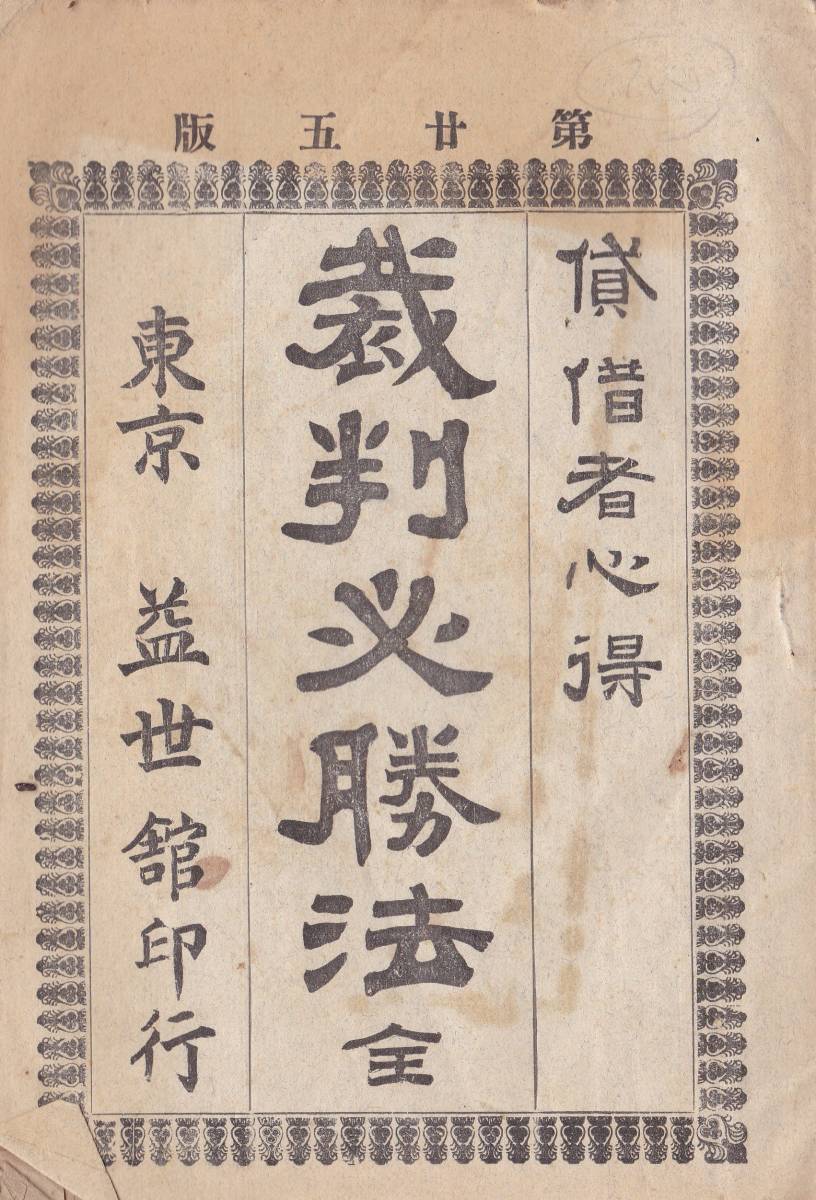 第廿五版
貸借者心得
裁判必勝法全
東京 益世舘印行